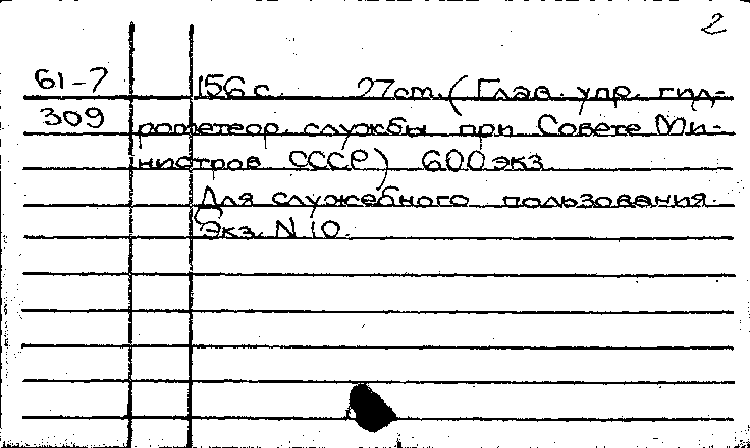 2
61-7 156 с. 27 см. (Глав. упр. гид-
309 рометеор. службы при Совете Ми-
нистров СССР) 600 экз.
Для служебного пользования.
Экз. N 10.